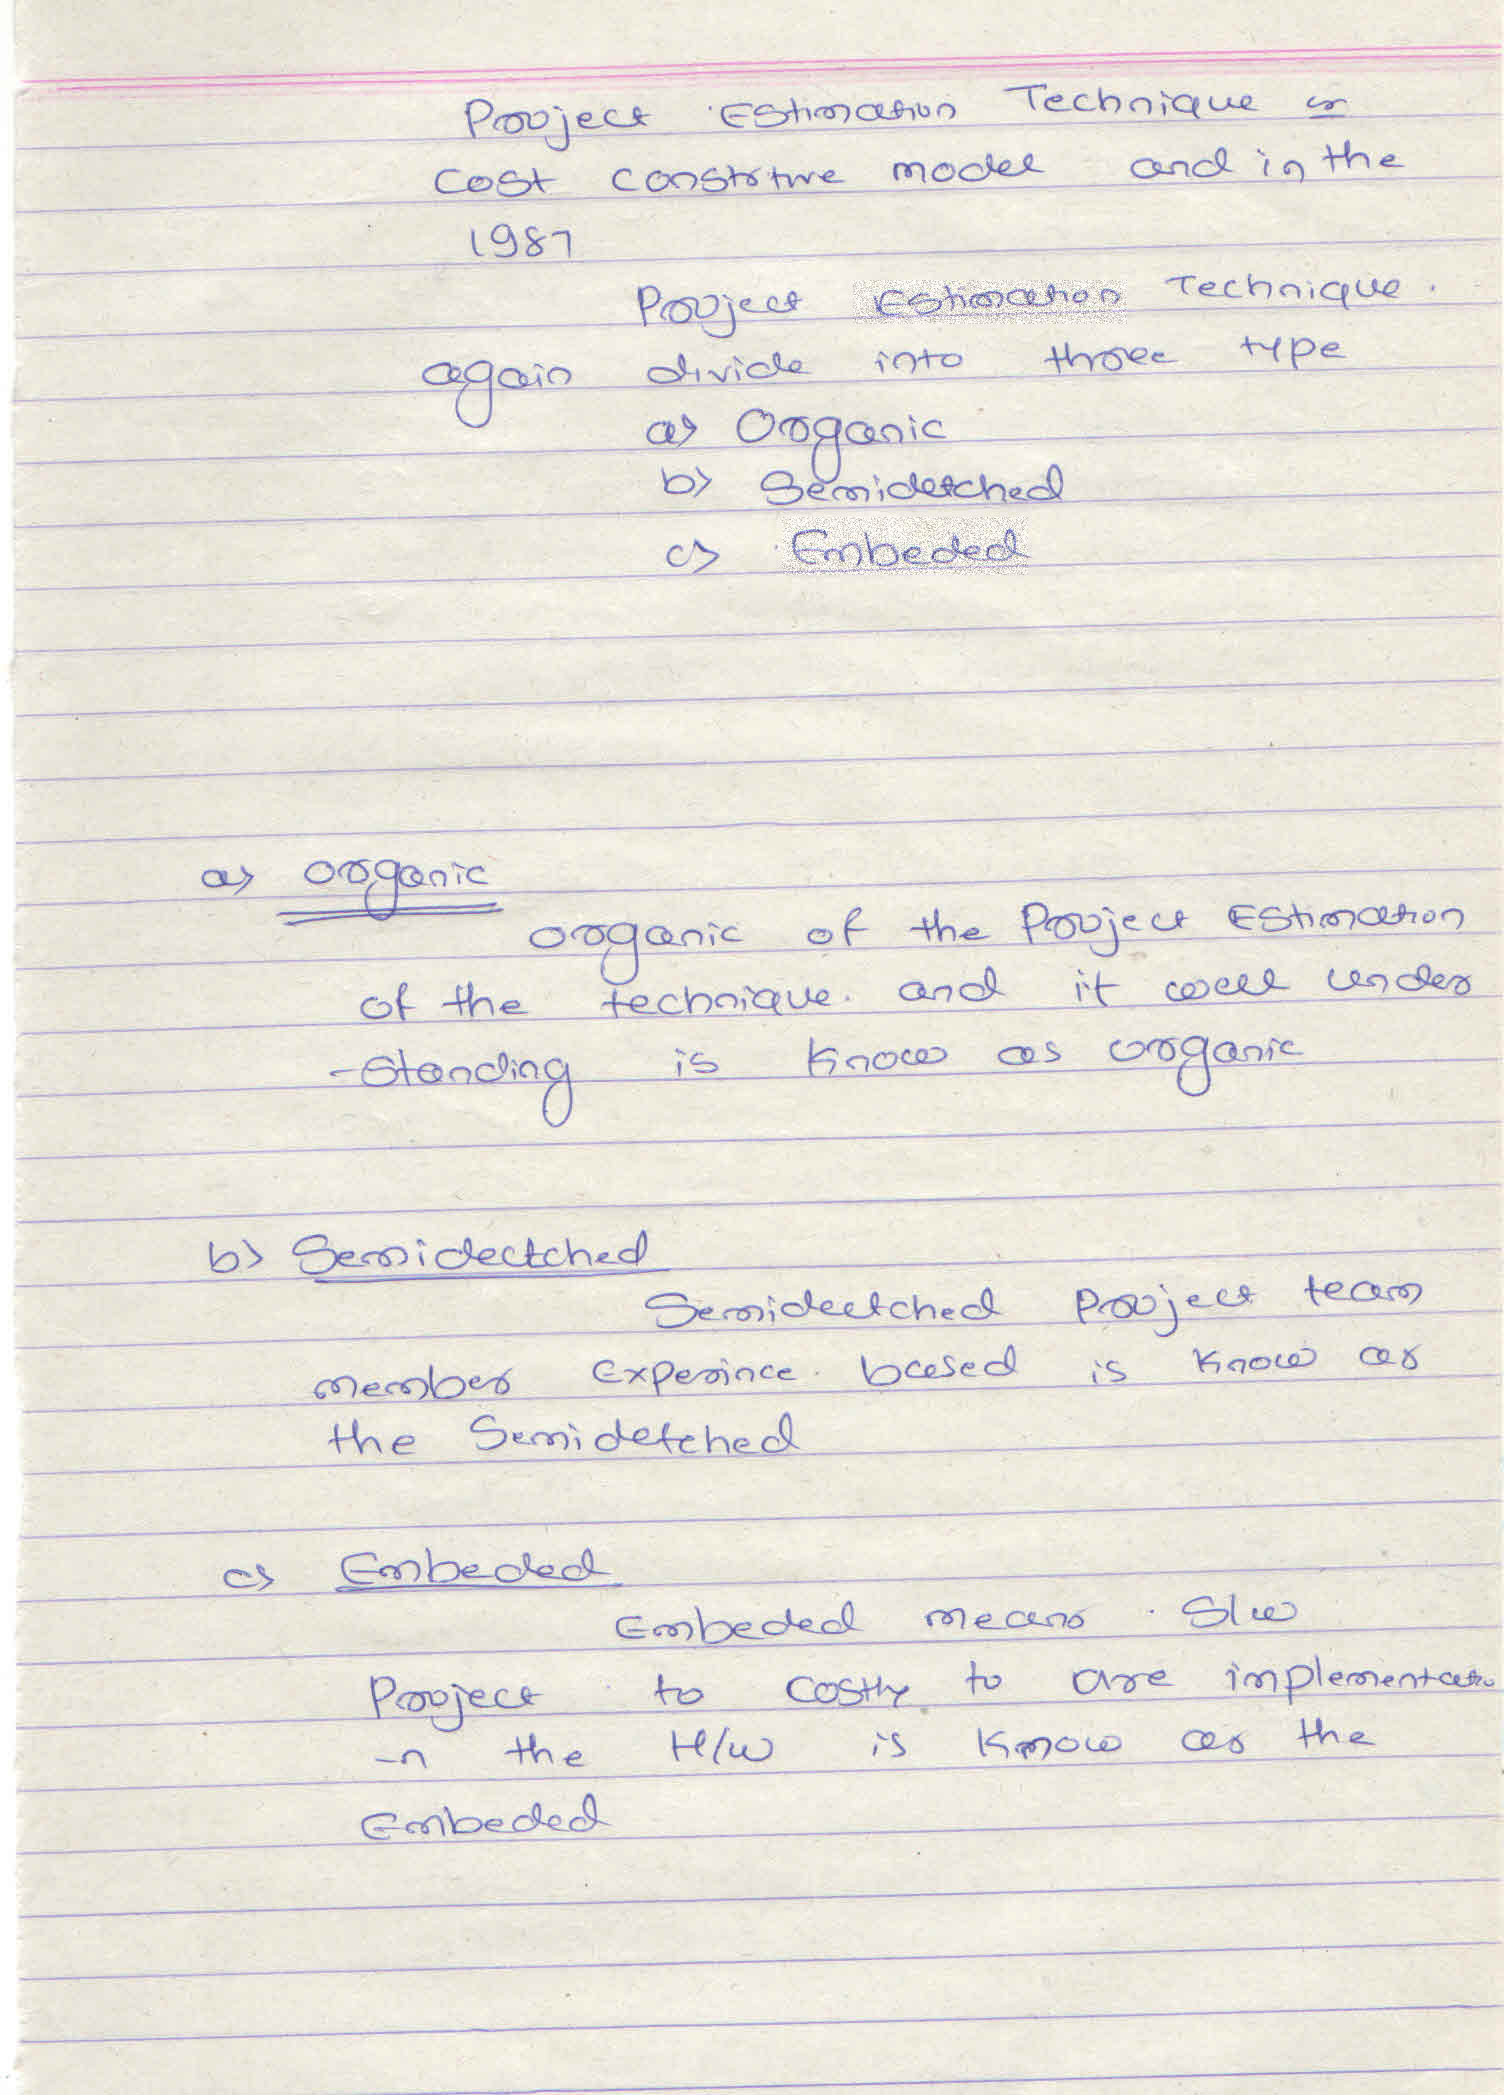 Project Estimation Technique is
cost constrtive model and in the
1987
Project Estimation Technique.
again divide into three type
a> Organic
b> Semidetched
c> Embeded
a> organic
organic of the Project Estimation
of the technique. and it well under
-standing is know as organic
b> Semidectched
Semidectched Project team
member Experince. based is know as
the Semidetched
c> Embeded
Embeded means. S/w
Project to costly to are implementatio
-n the H/w is know as the
Embeded